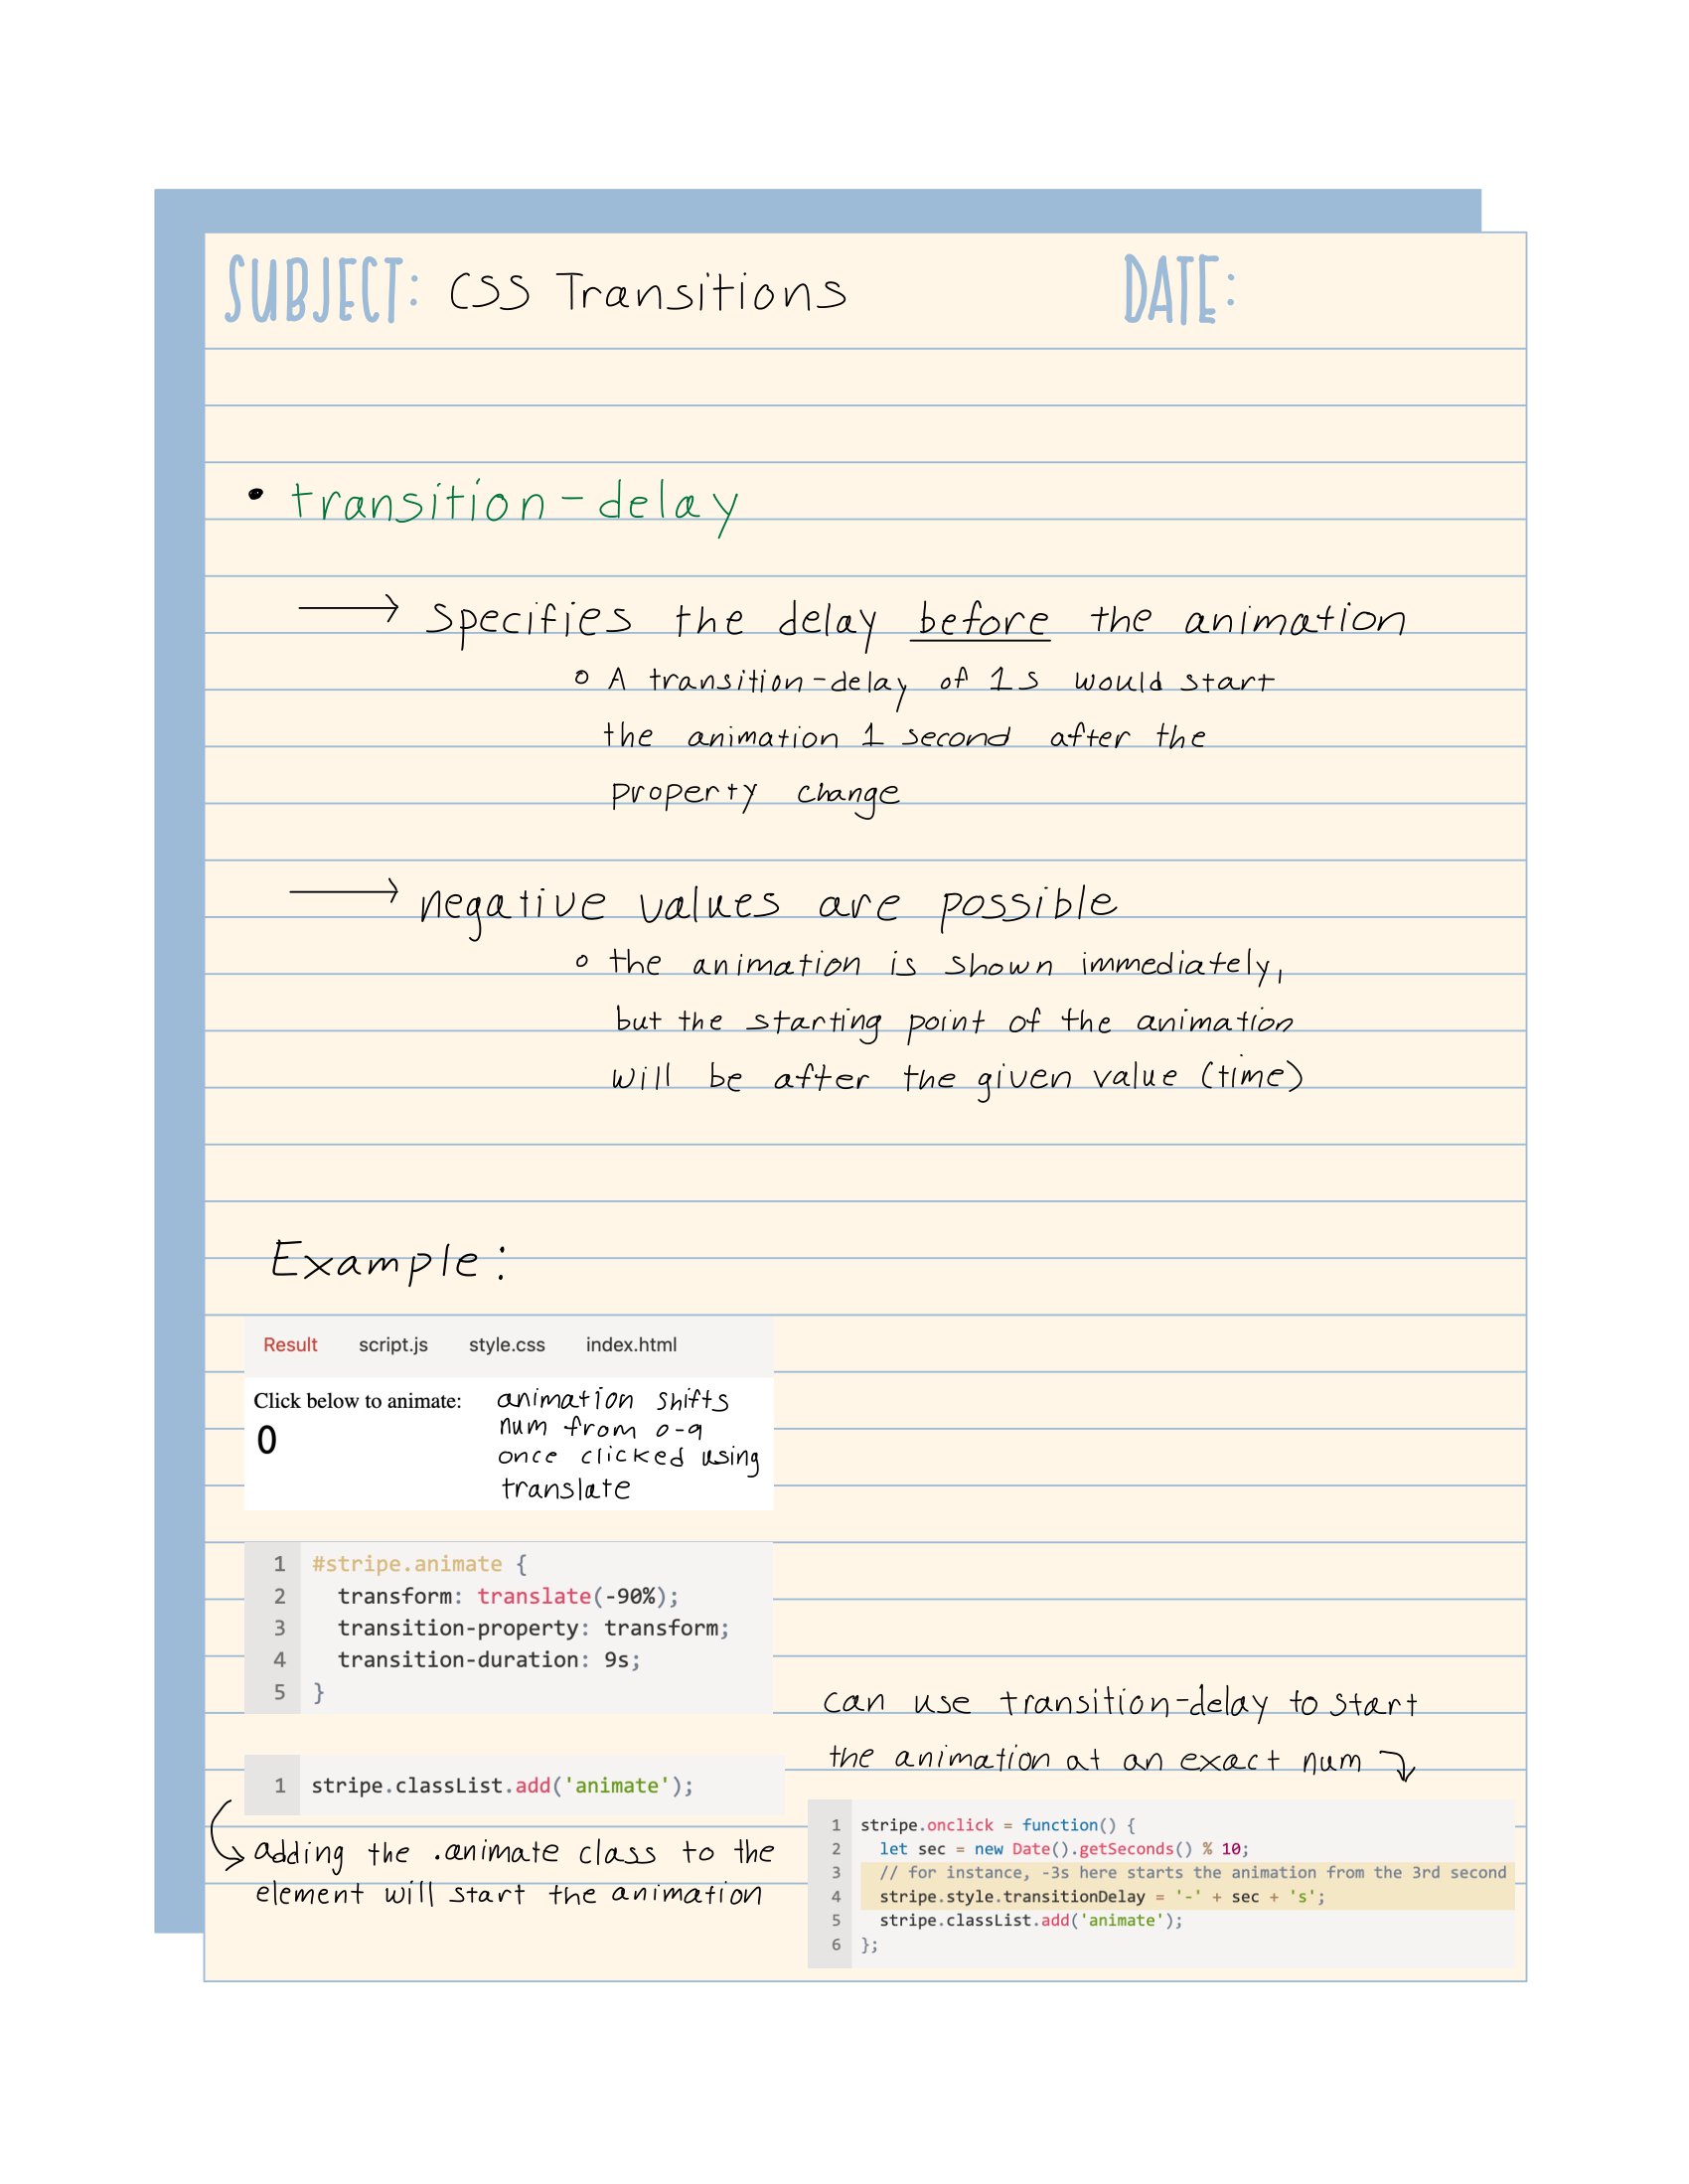 SUBJECT: CSS Transitions DATE:
• transition-delay
→ specifies the delay before the animation
○ A transition-delay of 1s would start
the animation 1 second after the
property change
→ negative values are possible
○ the animation is shown immediately,
but the starting point of the animation
will be after the given value (time)
Example:
Result script.js style.css index.html
Click below to animate:
0
animation shifts
num from 0-9
once clicked using
translate
1 #stripe.animate {
2 transform: translate(-90%);
3 transition-property: transform;
4 transition-duration: 9s;
5 }
1 stripe.classList.add('animate');
adding the .animate class to the
element will start the animation
can use transition-delay to start
the animation at an exact num
1 stripe.onclick = function() {
2 let sec = new Date().getSeconds() % 10;
3 // for instance, -3s here starts the animation from the 3rd second
4 stripe.style.transitionDelay = '-' + sec + 's';
5 stripe.classList.add('animate');
6 };